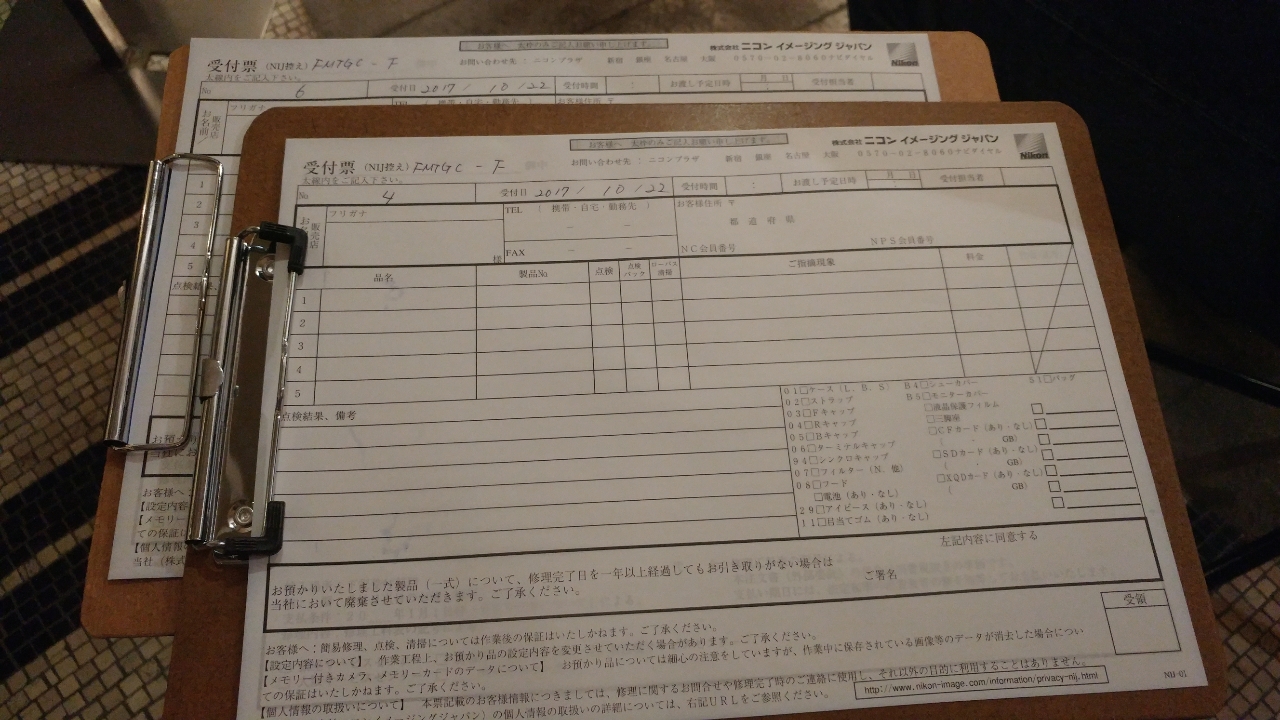 お客様へ 太枠のみご記入お願い申し上げます。
株式会社 ニコン イメージング ジャパン
Nikon
受付票 (NIJ控え) FMTGC - F
お問い合わせ先：ニコンプラザ 新宿 銀座 名古屋 大阪 0570-02-8060ナビダイヤル
太線内をご記入下さい。
No 6 受付日 2017 / 10 / 22 受付時間 : お渡し予定日時 月 日 : 受付担当者
フリガナ
TEL ( 携帯・自宅・勤務先 )
お客様住所 〒
販売店
お名前／
1
2
3
4
5
点検結果、
お預か
当社にお
お客様へ：
【設定内容
【メモリー
ての保証は
【個人情報の
当社（株式
お客様へ 太枠のみご記入お願い申し上げます。
株式会社 ニコン イメージング ジャパン
Nikon
受付票 (NIJ控え) FMTGC - F
お問い合わせ先：ニコンプラザ 新宿 銀座 名古屋 大阪 0570-02-8060ナビダイヤル
太線内をご記入下さい。
No 4 受付日 2017 / 10 / 22 受付時間 : お渡し予定日時 月 日 : 受付担当者
フリガナ
TEL ( 携帯・自宅・勤務先 )
お客様住所 〒
販売店
都 道 府 県
様
FAX
NC会員番号 NPS会員番号
品名 製品No 点検 点検パック ローパス清掃 ご指摘現象 料金
1
2
3
4
5
点検結果、備考
01□ケース（L．B．S） B4□シューカバー S1□バッグ
02□ストラップ B5□モニターカバー
03□Fキャップ □液晶保護フィルム
04□Rキャップ □三脚座
05□Bキャップ □CFカード（あり・なし）
06□ターミナルキャップ （ ・ GB）
94□シンクロキャップ □SDカード（あり・なし）
07□フィルター（N．他） （ ・ GB）
08□フード □XQDカード（あり・なし）
□電池（あり・なし） （ GB）
29□アイピース（あり・なし）
11□目当てゴム（あり・なし）
左記内容に同意する
お預かりいたしました製品（一式）について、修理完了日を一年以上経過してもお引き取りがない場合は
当社において廃棄させていただきます。ご了承ください。
ご署名
受領
お客様へ：簡易修理、点検、清掃については作業後の保証はいたしかねます。ご了承ください。
【設定内容について】 作業工程上、お預かり品の設定内容を変更させていただく場合があります。ご了承ください。
【メモリー付きカメラ、メモリーカードのデータについて】 お預かり品については細心の注意をしていますが、作業中に保存されている画像等のデータが消失した場合につい
ての保証はいたしかねます。ご了承ください。
【個人情報の取扱いについて】 本票記載のお客様情報につきましては、修理に関するお問合せや修理完了時のご連絡に使用し、それ以外の目的に利用することはありません。
イメージングジャパン）の個人情報の取扱いの詳細については、右記URLをご参照ください。
http://www.nikon-image.com/information/privacy-nij.html
NIJ-01